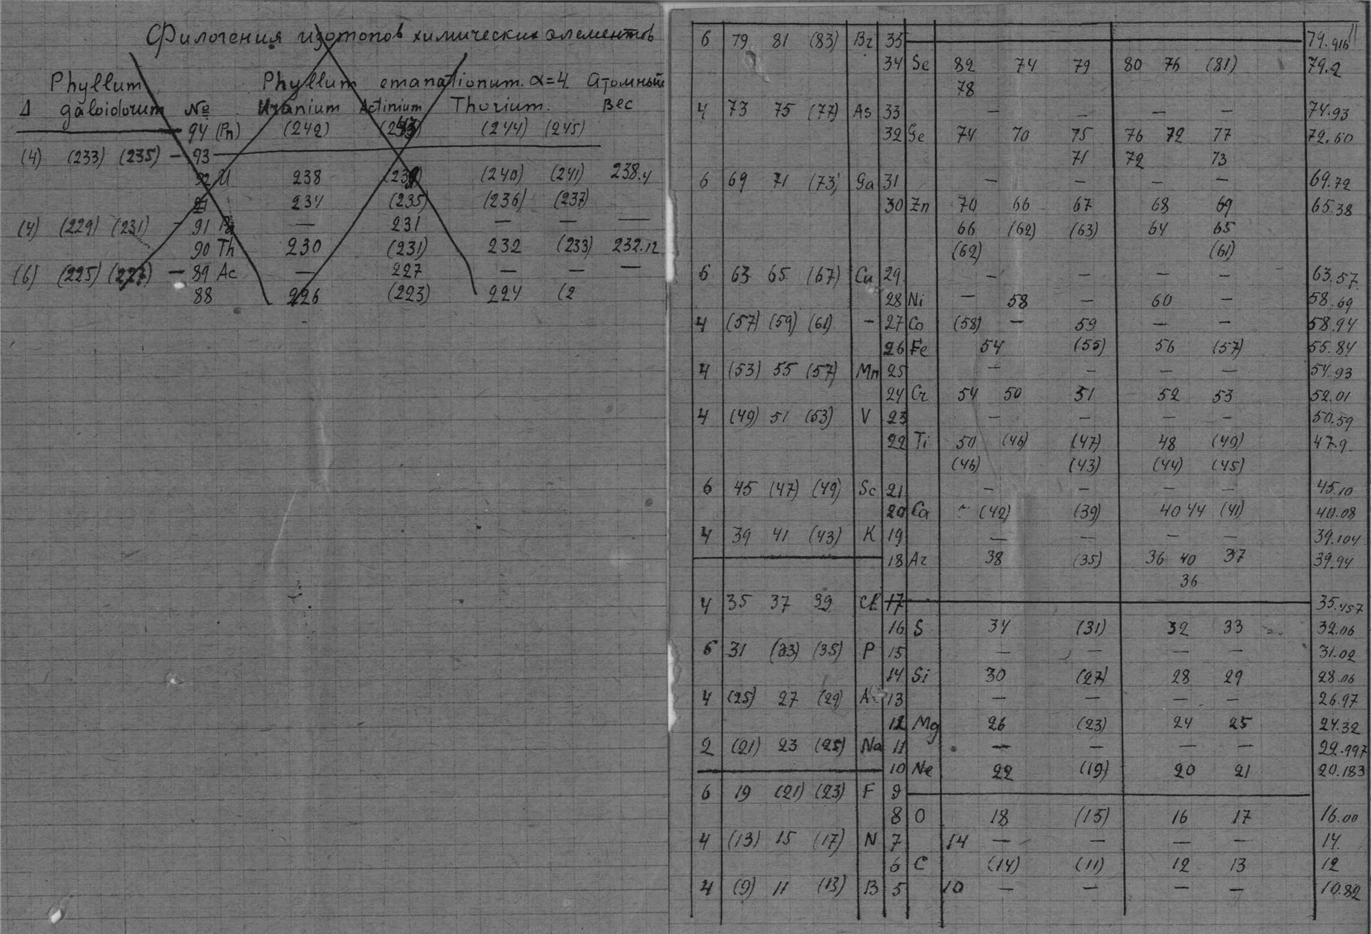 Филогения изотопов химических элементов
Phyllum Phyllum emanationum. α=4. Атомный
Δ galoidorum № Uranium Actinium Thorium. вес
94 (Pn) (242) (244) (245)
(4) (233) (235) — 93
92 U 238 (240) (241) 238.4
234 (235) (236) (237)
(4) (229) (231) — 91 Pa — 231 — — —
90 Th 230 (231) 232 (233) 232.12
(6) (225) — 89 Ac — 227 — — —
88 226 (223) 224 (2
6 79 81 (83) Br 35 79.916
34 Se 82 74 79 80 76 (81) 79.2
78
4 73 75 (77) As 33 — — — 74.93
32 Ge 74 70 75 76 72 77 72.60
71 72 73
6 69 71 (73) Ga 31 — — — — 69.72
30 Zn 70 66 67 68 69 65.38
66 (62) (63) 64 65
(62) (61)
6 63 65 (67) Cu 29 — — — — 63.57
28 Ni — 58 — 60 — 58.69
4 (57) (59) (61) — 27 Co (58) — 59 — — 58.94
26 Fe 54 (55) 56 (57) 55.84
4 (53) 55 (57) Mn 25 — — — 54.93
24 Cr 54 50 51 52 53 52.01
4 (49) 51 (53) V 23 — — — — 50.59
22 Ti 50 (46) (47) 48 (49) 47.9
(46) (43) (44) (45)
6 45 (47) (49) Sc 21 — — — — 45.10
20 Ca - (42) (39) 40 44 (41) 40.08
4 39 41 (43) K 19 — — — — 39.104
18 Ar 38 (35) 36 40 37 39.94
36
4 35 37 39 Cl 17 35.457
16 S 34 (31) 32 33 32.06
6 31 (33) (35) P 15 — — — — 31.02
14 Si 30 (27) 28 29 28.06
4 (25) 27 (29) 13 — — — — 26.97
12 Mg 26 (23) 24 25 24.32
2 (21) 23 (25) Na 11 — — — — 22.997
10 Ne 22 (19) 20 21 20.183
6 19 (21) (23) F 9
8 O 18 (15) 16 17 16.00
4 (13) 15 (17) N 7 14 — — — — 14.
6 C (14) (11) 12 13 12
4 (9) 11 (13) B 5 10 — — — — 10.82